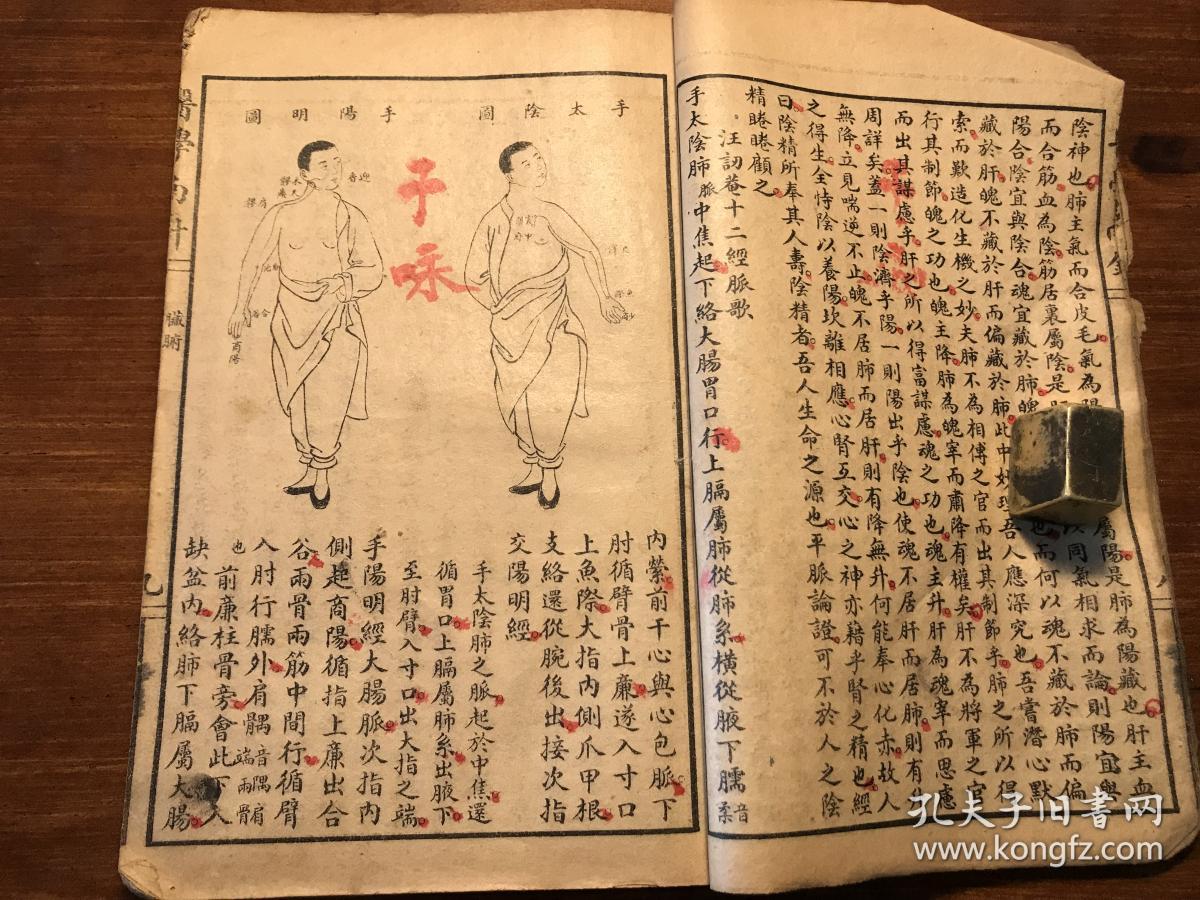 陰神也肺主氣而合皮毛氣為陽
屬陽是肺為陽藏也肝主血
而合筋血為陰筋居裏屬陰是
以同氣相求而論則陽宜與
陽合陰宜與陰合魂宜藏於肺魄
也而何以魂不藏於肺而偏
藏於肝魄不藏於肝而偏藏於肺此中妙理吾人應深究也吾嘗潛心默
索而歎造化生機之妙夫肺不為相傅之官而出其制節乎肺之所以得
行其制節魄之功也魄主降肺為魄宰而肅降有權矣肝不為將軍之官
而出其謀慮乎肝之所以得富謀慮魂之功也魂主升肝為魂宰而思慮
周詳矣蓋一則陰濟乎陽一則陽出乎陰也使魂不居肝而居肺則有升
無降立見喘逆不止魄不居肺而居肝則有降無升何能奉心化赤故人
之得生全恃陰以養陽坎離相應心腎互交心之神亦藉乎腎之精也經
曰陰精所奉其人壽陰精者吾人生命之源也平脈論證可不於人之陰
精睠睠顧之
汪訒菴十二經脈歌
手太陰肺脈中焦起下絡大腸胃口行上膈屬肺從肺系橫從腋下臑音柔
手太陰圖
手陽明圖
迎香
禾髎
肩髃
合谷
商陽
內縈前于心與心包脈下
肘循臂骨上廉遂入寸口
上魚際大指內側爪甲根
支絡還從腕後出接次指
交陽明經
手太陰肺之脈起於中焦還
循胃口上膈屬肺系出腋下
至肘臂入寸口出大指之端
手陽明經大腸脈次指內
側起商陽循指上廉出合
谷兩骨兩筋中間行循臂
入肘行臑外肩髃音隅肩端兩骨
也前廉柱骨旁會此下入
缺盆內絡肺下膈屬大腸
臟腑
九
孔夫子旧书网
www.kongfz.com